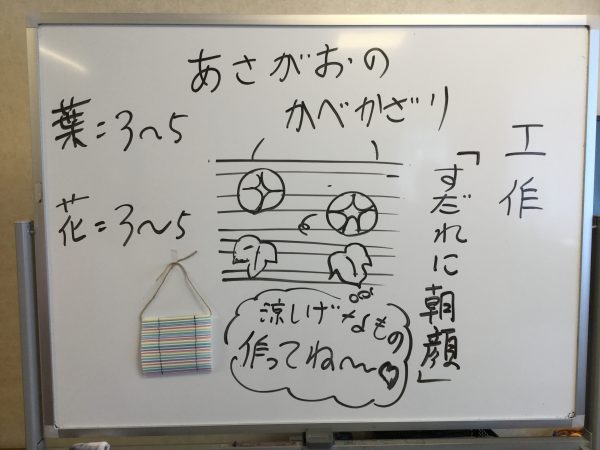 工作
「すだれに朝顔」
あさがおの
かべかざり
葉=3〜5
花=3〜5
涼しげなもの
作ってね〜♡